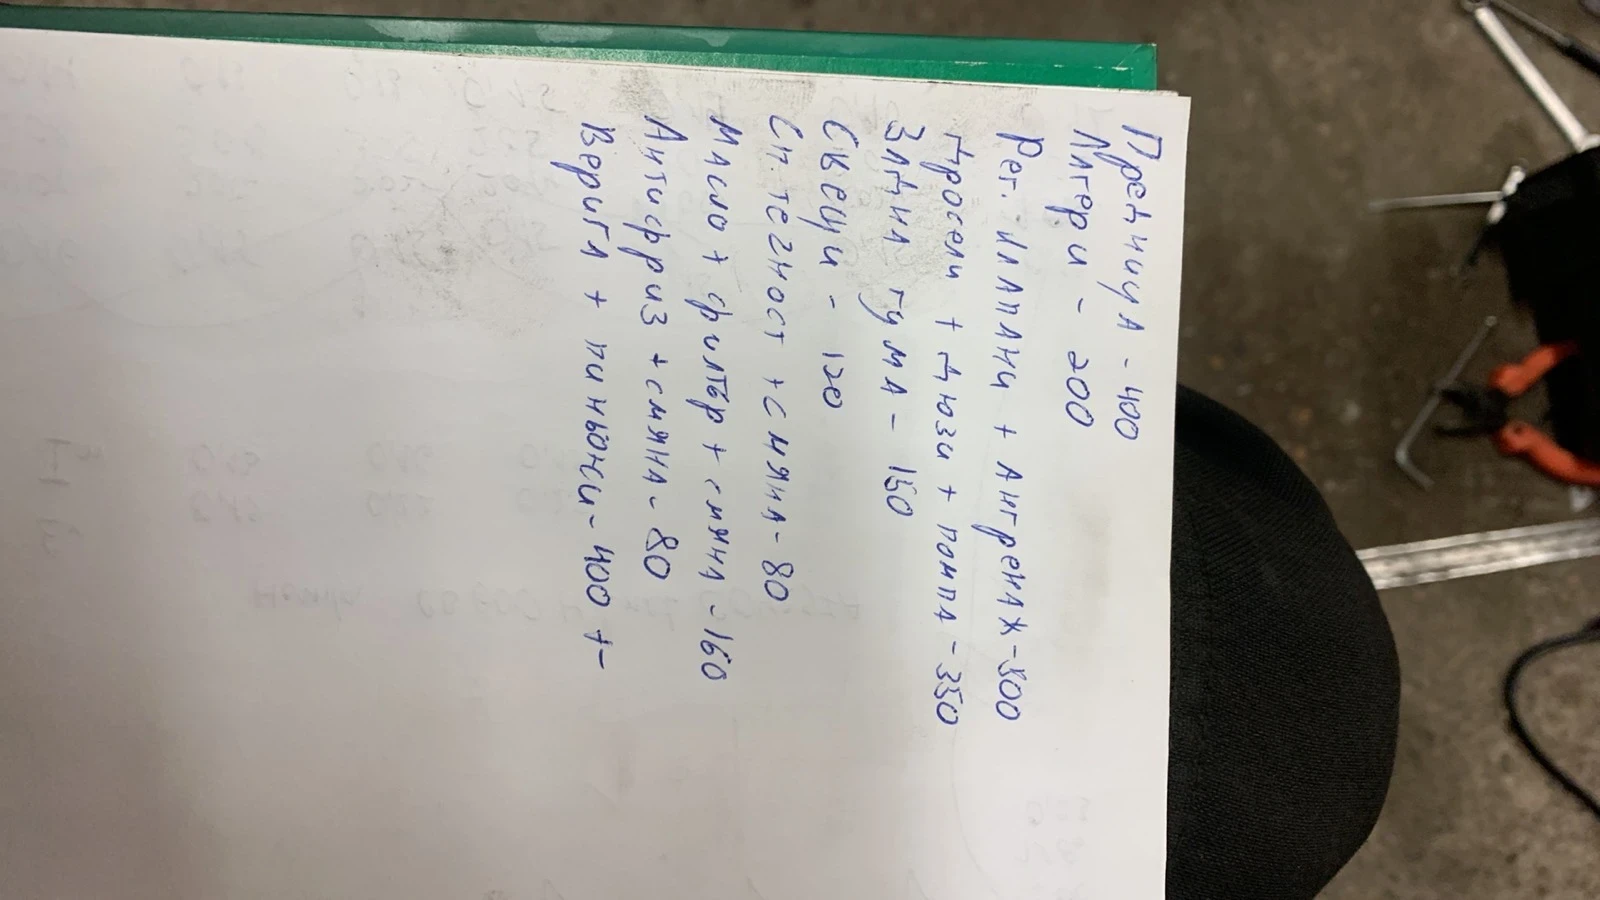 Предница - 400
Лагери - 200
Рег. клапани + ангренаж - 500
Дросели + дюзи + помпа - 350
Задна гума - 150
Свещи - 120
Сп. течност + смяна - 80
Масло + филтър + смяна - 160
Антифриз + смяна - 80
Верига + пиньони - 400 +-